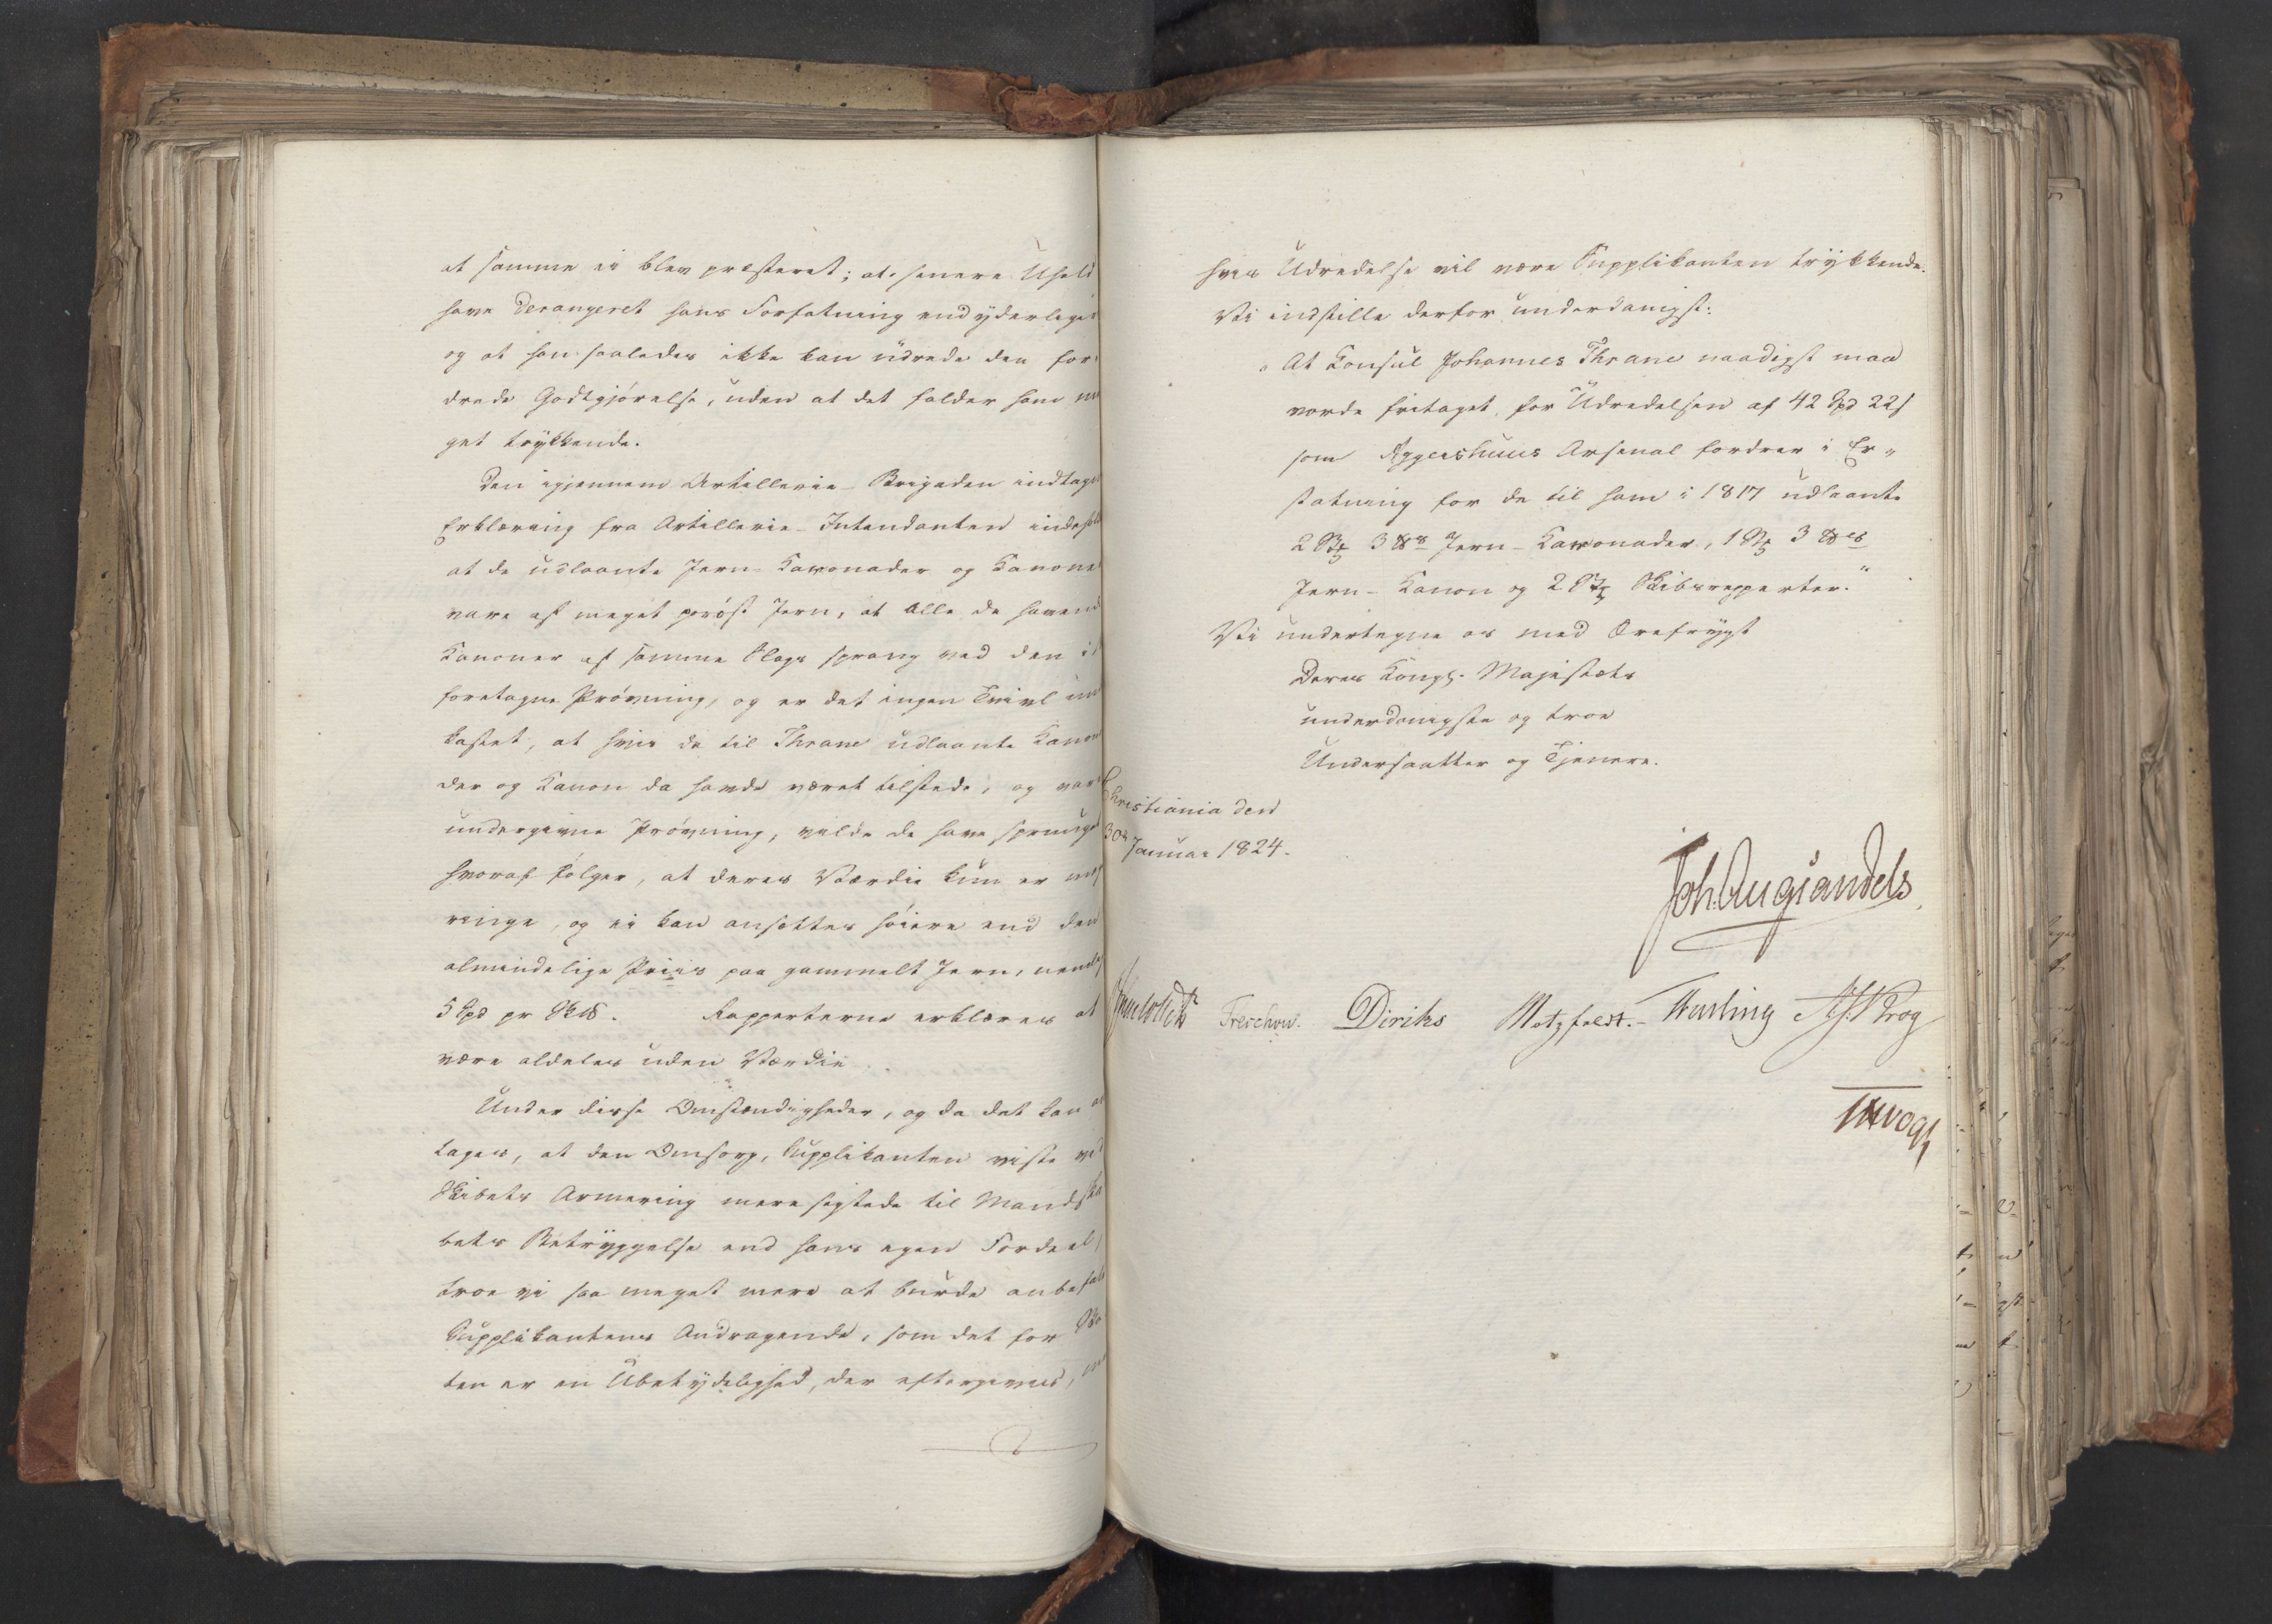 at samme ei blev præsteret; at senere Uheld
have derangeret hans Forfatning end yderliger
og at han saaledes ikke kan udrede den for
drede Godtgjørelse, uden at det falder ham me
get trykkende.
Den igjennem Artillerie-Brigaden indtagne
Erklæring fra Artillerie-Intendanten indehol
at de udlaante Jern-Karonader og Kanone
vare af meget porøst Jern, at alle de havend
Kanoner af samme Slags sprang ved den i
foretagne Prøvning, og er det ingen Tvivl un
kastet, at hvis de til Thrane udlaante Karon
der og Kanon da havde været tilstede, og vare
undergivne Prøvning, vilde de have sprunget
hvoraf følger, at deres Værdie kun er
ringe, og ei kan ansættes høiere end den
almindelige Priis paa gammelt Jern, nemlig
5 Spd pr Sk℔. Rapperterne erklæres at
være aldeles uden Værdie.
Under disse Omstændigheder, og da det kan an
tages, at den Omsorg, Supplikanten viste ved
Skibets Armering mere sigtede til Mandska
bets Betryggelse end hans egen Fordeel,
troe vi saa meget mere at burde anbefale
Supplikantens Andragende, som det for Sta
ten er en Ubetydelighed, der eftergives, m
hvis Udredelse vil være Supplikanten trykkende.
Vi indstille derfor underdanigst:
"At Konsul Johannes Thrane naadigst maa
vorde fritaget for Udredelsen af 42 Spd 22 s
som Aggershuus Arsenal fordrer i Er-
statning for de til ham i 1817 udlaante
2 Stk 3 ℔s Jern-Karonader, 1 Stk 3 ℔es
Jern-Kanon og 2 Stk Skibsrapperter."
Vi undertegne os med Ærefrygt
Deres Kongl. Majestæts
underdanigste og troe
Undersaatter og Tjenere.
Christiania den
30te Januar 1824.
Joh. Aug Sandels
Sommerhielm Treschow. Diriks Motzfeldt. Fasting A. J. Krog
JHVogt